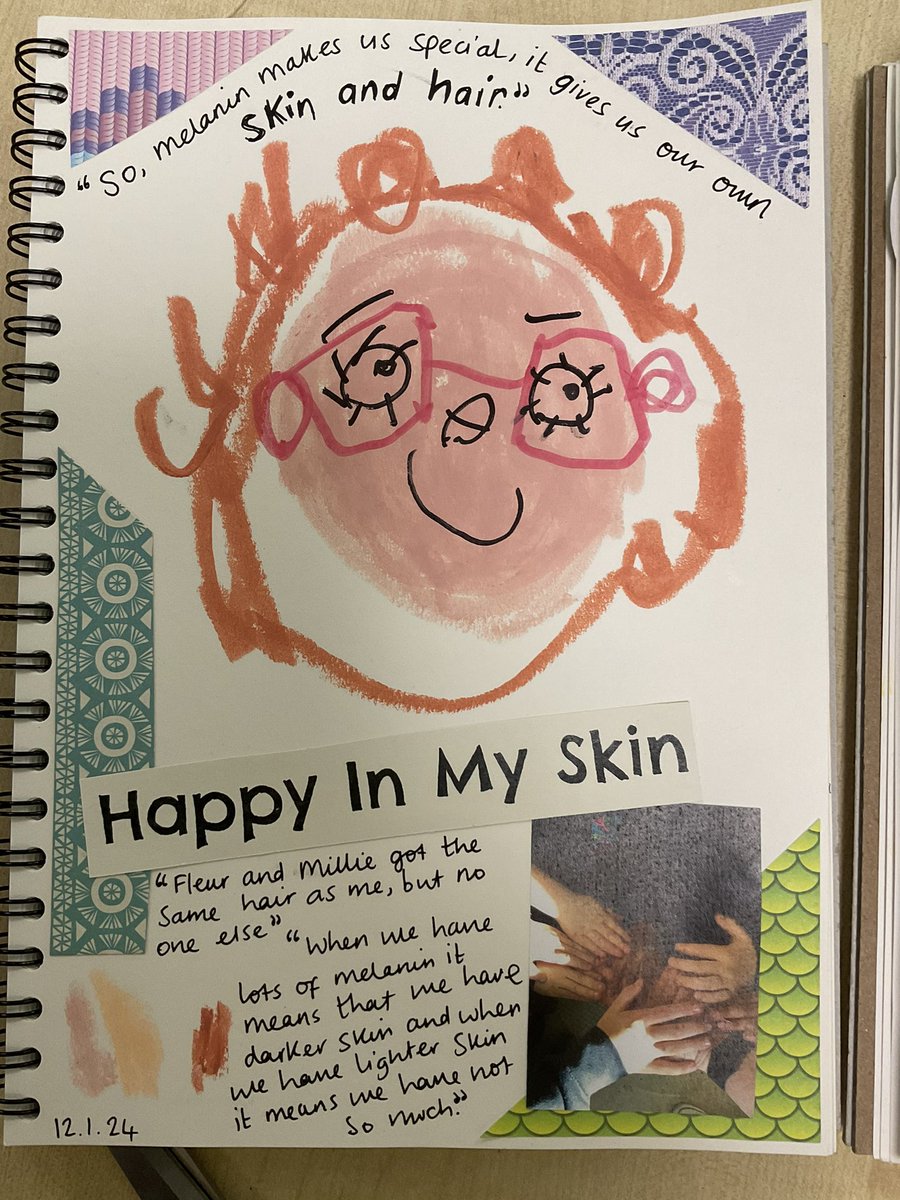 “So, melanin makes us special, it gives us our own
skin and hair.”
Happy In My Skin
“Fleur and Millie got the
same hair as me, but no
one else”
“When we have
lots of melanin it
means that we have
darker skin and when
we have lighter skin
it means we have not
so much.”
12.1.24